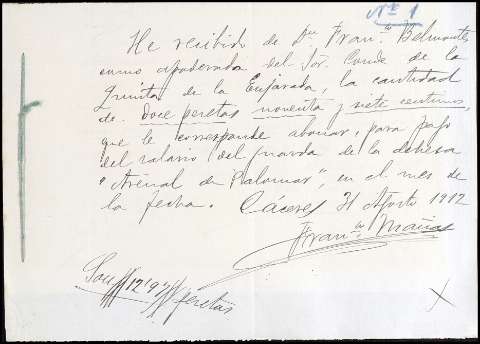 Nº 1
He recibido de Dn Franco Belmonte
como apoderado del Sor. Conde de la
Quinta de la Enjarada, la cantidad
de doce pesetas noventa y siete centimos,
que le corresponde abonar, para pago
del salario del guarda de la dehesa
"Arenal de Palomar", en el mes de
la fecha. Cáceres 31 Agosto 1912
Franco Mañas
Son 12'97 pesetas